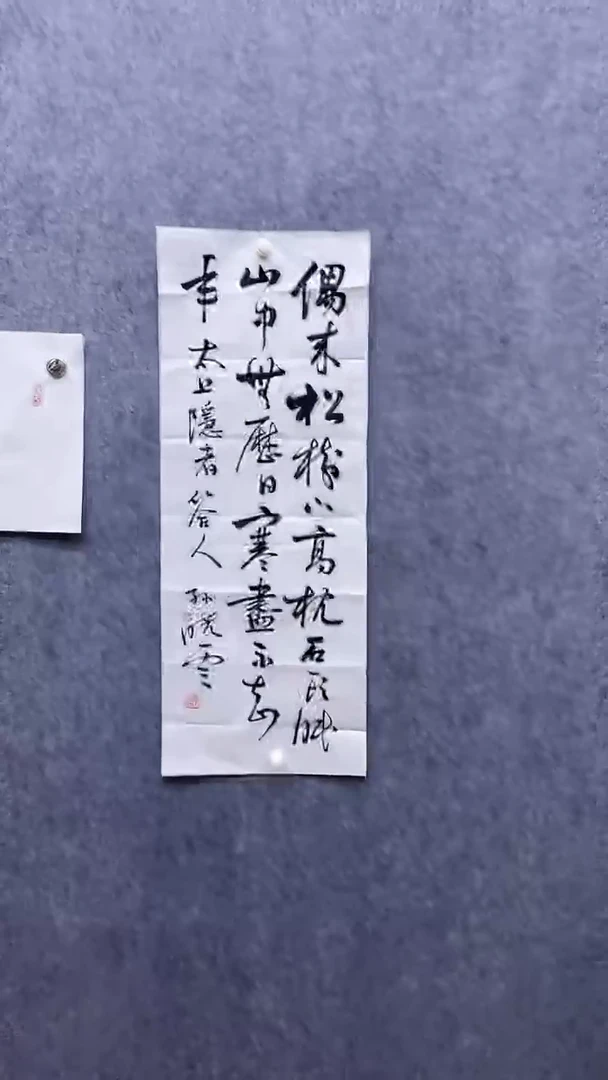 偶來松樹下高枕石頭眠
山中無曆日寒盡不知
年 太上隱者答人 孫曉雲